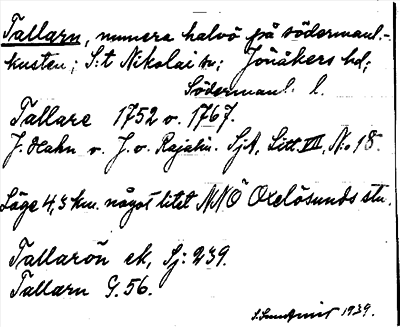 Tallarn, numera halvö på södermanl.-
kusten; S:t Nikolai sn; Jönåkers hd;
Södermanl. l.
Tallare 1752 o. 1767.
J. Hahn o. J. v. Rajalin. SjK, Litt VII, No 18.
Läge 4,3 km. något litet NNÖ Oxelösunds stn.
Tallarön ek, Sj: 239.
Tallarn G. 56.
1939.